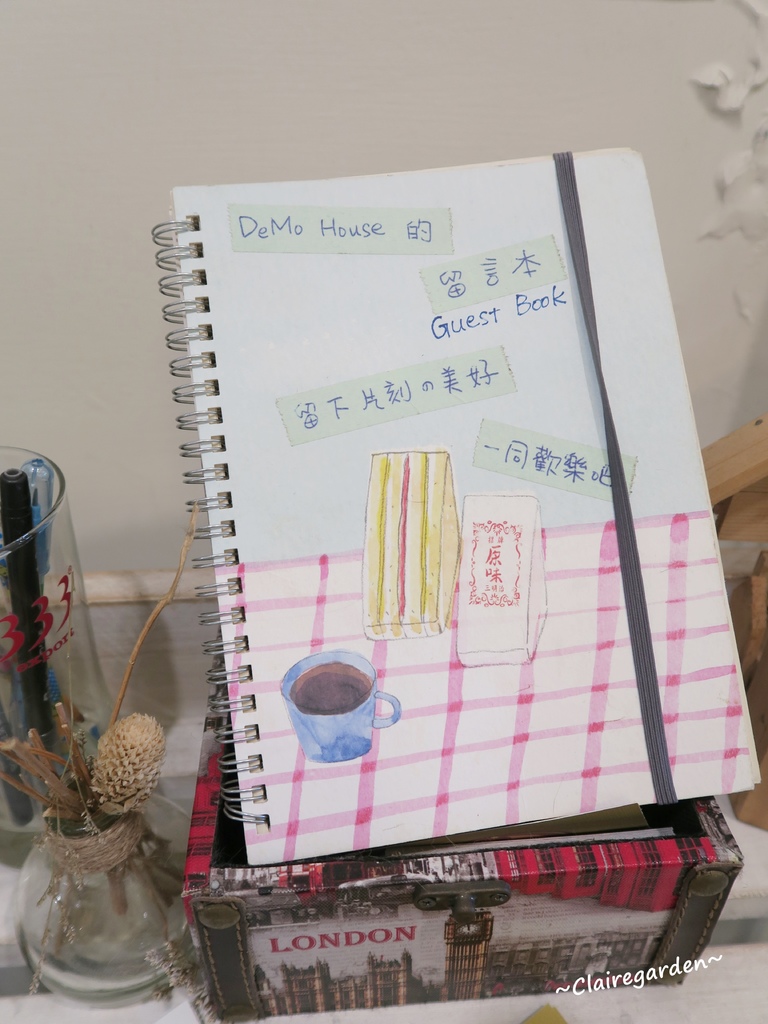 DeMo House 的
留言本
Guest Book
留下片刻の美好
一同歡樂吧
原味
三明治
333
LONDON
~Clairegarden~